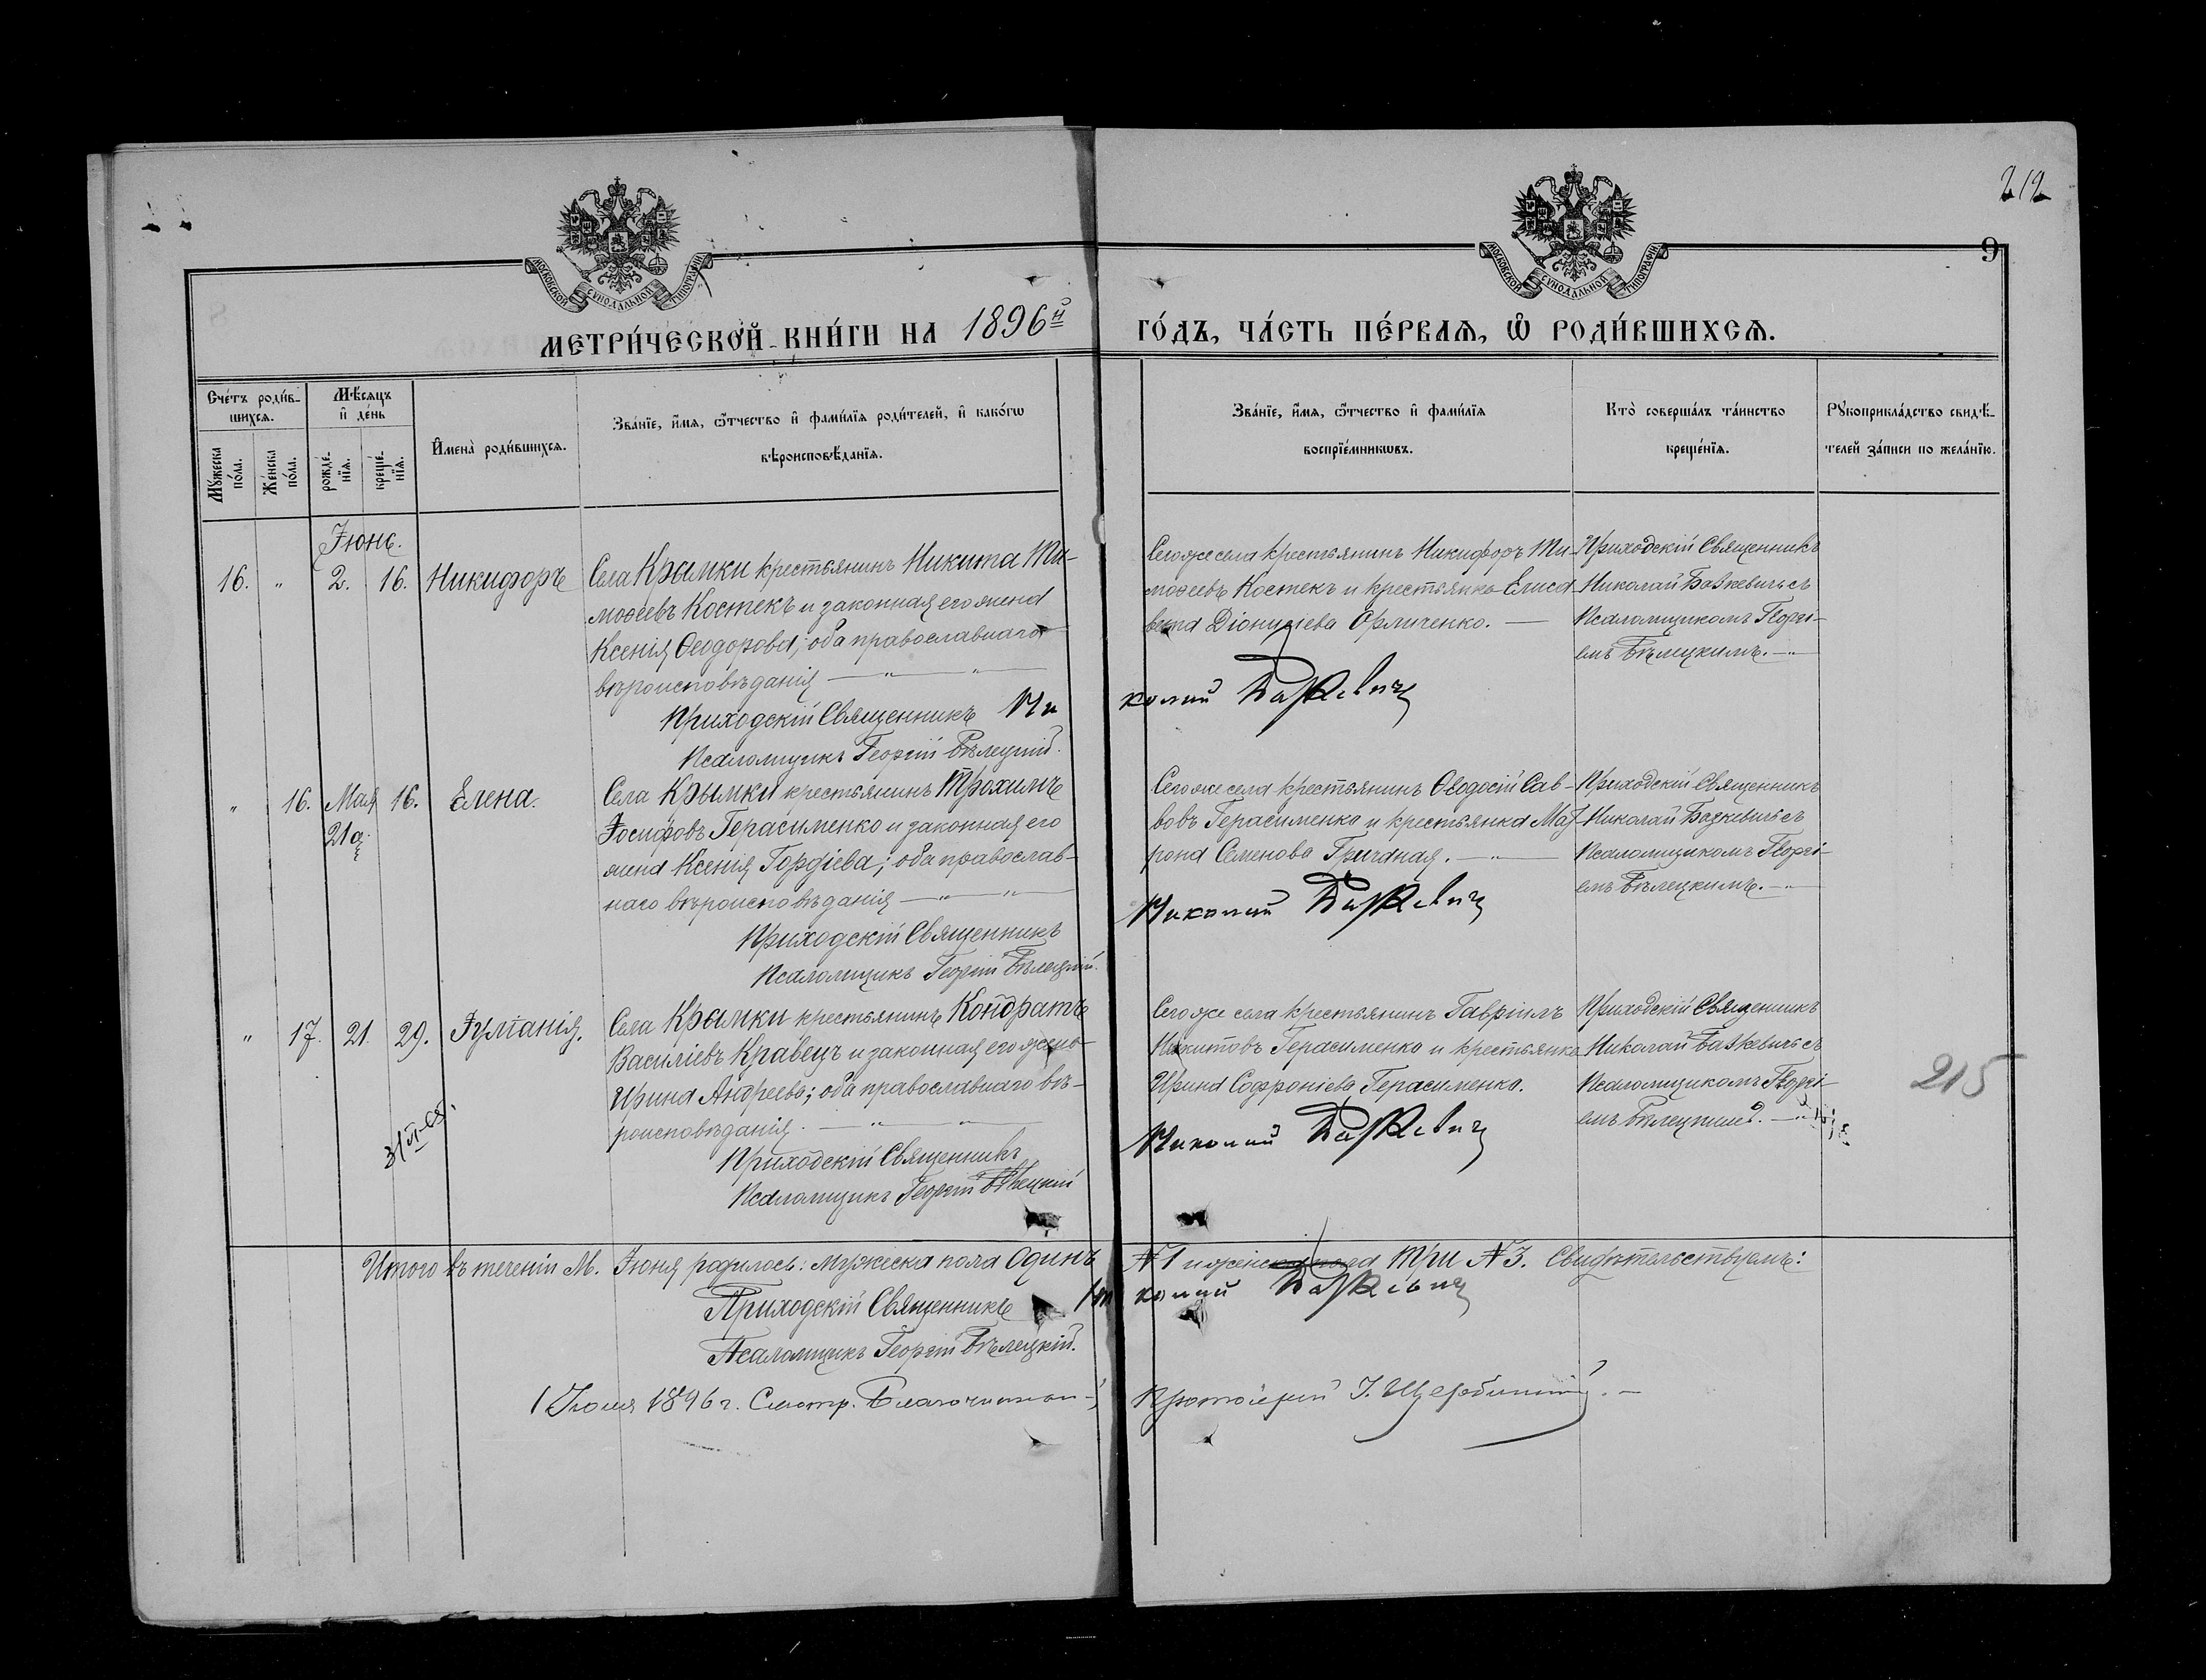 212
9
МОСКОВСКОЙ СУНОДАЛЬНОЙ ТИПОГРАФІИ
МОСКОВСКОЙ СУНОДАЛЬНОЙ ТИПОГРАФІИ
МЕТРИ́ЧЕСКОЙ КНИ́ГИ НА 1896й
ГО́ДЪ, ЧА́СТЬ ПЕ́РВАѦ, Ѡ РОДИ́ВШИХСѦ.
Сче́тъ роди́в-
шихсѧ.
Мѣ́сѧцъ
и҆ де́нь
Мꙋжеска
по́ла.
Же́нска
по́ла.
рожде́-
нїѧ.
креще́-
нїѧ.
И҆мена̀ роди́вшихсѧ.
Зва́нїе, и҆́мѧ, ѻ҆́тчество и҆ фами́лїѧ роди́телей, и҆ како́гѡ
вѣроисповѣ́данїѧ.
Зва́нїе, и҆́мѧ, ѻ҆́тчество и҆ фами́лїѧ
воспрїе́мникѡвъ.
Кто̀ соверша́лъ та́инство
креще́нїѧ.
Рꙋкоприкла́дство свидѣ́-
телей за́писи по жела́нїю.
Іюнь.
16. „ 2. 16. Никифоръ
Села Крымки крестьянинъ Никита Ти-
моѳеевъ Костекъ и законная его жена
Ксенія Ѳеодорова; оба православнаго
вѣроисповѣданія — „ — „ —
Приходскій Священникъ Ни
Псаломщикъ Георгій Бѣлецкій.
Сегоже села крестьянинъ Никифоръ Ти-
моѳеевъ Костекъ и крестьянка Елиса-
вета Діонисіева Орличенко. —
колай Базкевичъ
Приходскій Священникъ
Николай Базкевичъ съ
Псаломщикомъ Георгі-
емъ Бѣлецкимъ. — „
„ 16. Мая 16. Елена.
21
Села Крымки крестьянинъ Трохимъ
Іосифовъ Герасименко и законная его
жена Ксенія Гордіева; оба православ-
наго вѣроисповѣданія — „ — „ —
Приходскій Священникъ
Псаломщикъ Георгій Бѣлецкій.
Сегоже села крестьянинъ Ѳеодосій Сав-
вовъ Герасименко и крестьянка Мат-
рона Семенова . — „ —
Николай Базкевичъ
Приходскій Священникъ
Николай Базкевичъ съ
Псаломщикомъ Георгі-
емъ Бѣлецкимъ. — „
„ 17. 21. 29. Іуліанія.
Села Крымки крестьянинъ Кондратъ
Василіевъ Кравецъ и законная его жена
Ирина Андреева; оба православнаго вѣ-
роисповѣданія. — „ — „ —
Приходскій Священникъ
Псаломщикъ Георгій Бѣлецкій
Сегоже села крестьянинъ Гавріилъ
Никитовъ Герасименко и крестьянка
Ирина Софроніева Герасименко.
Николай Базкевичъ
Приходскій Священникъ
Николай Базкевичъ съ
Псаломщикомъ Георгі-
емъ Бѣлецкимъ. — „
215
Итого въ теченіи М. Іюня родилось: мужеска пола Одинъ
№ 1 и женска пола Три № 3. Свидѣтельствуемъ:
Приходскій Священникъ Ни
колай Базкевичъ
Псаломщикъ Георгій Бѣлецкій.
1 Іюля 1896 г. Смотр. Благочинный
Протоіерей І. Щербинскій. —